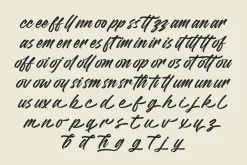 cc ee ff ll nn oo pp ss tt zz am an ar
as em en er es ft im in ir is it tl tf of
off oi oj ol oll om on op or os ot ott ou
ov ow oy si sm sn sr th ti tt um un ur
us ux a b c d e f g h i j k l
m n o p q r s t u v x y z
b d h g g T L y